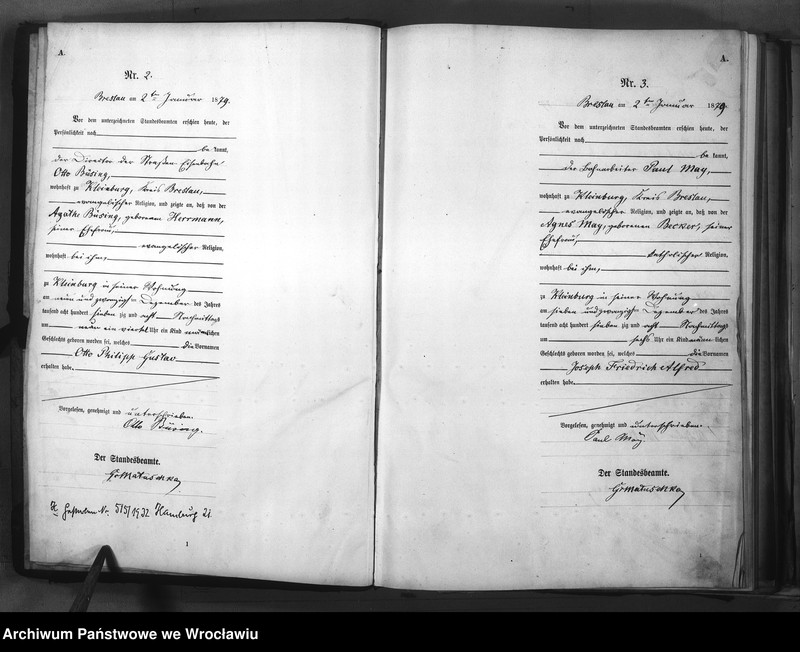 A.
Nr. 2.
Breslau am 2ten Januar 1879.
Vor dem unterzeichneten Standesbeamten erschien heute, der
Persönlichkeit nach
be kannt,
der Director der Straßen Eisenbahn
Otto Büsing,
wohnhaft zu Kleinburg, Kreis Breslau,
evangelischer Religion, und zeigte an, daß von der
Agathe Büsing, geborenen Herrmann,
seiner Ehefrau,
evangelischer Religion,
wohnhaft bei ihm,
zu Kleinburg in seiner Wohnung
am neun und zwanzigsten Dezember des Jahres
tausend acht hundert sieben zig und acht Nachmittags
um neun ein viertel Uhr ein Kind männlichen
Geschlechts geboren worden sei, welches die Vornamen
Otto Philipp Gustav
erhalten habe.
Vorgelesen, genehmigt und unterschrieben.
Otto Büsing.
Der Standesbeamte.
Gestorben Nr. 575/1932 Hamburg 21.
1
A.
Nr. 3.
Breslau am 2ten Januar 1879
Vor dem unterzeichneten Standesbeamten erschien heute, der
Persönlichkeit nach
be kannt,
der Bahnarbeiter Paul May,
wohnhaft zu Kleinburg, Kreis Breslau,
evangelischer Religion, und zeigte an, daß von der
Agnes May, geborenen Becker, seiner
Ehefrau,
katholischer Religion,
wohnhaft bei ihm,
zu Kleinburg in seiner Wohnung
am sieben und zwanzigsten Dezember des Jahres
tausend acht hundert sieben zig und acht Nachmittags
um sechs Uhr ein Kind männlichen
Geschlechts geboren worden sei, welches die Vornamen
Joseph Friedrich Alfred
erhalten habe.
Vorgelesen, genehmigt und unterschrieben.
Paul May
Der Standesbeamte.
Archiwum Państwowe we Wrocławiu